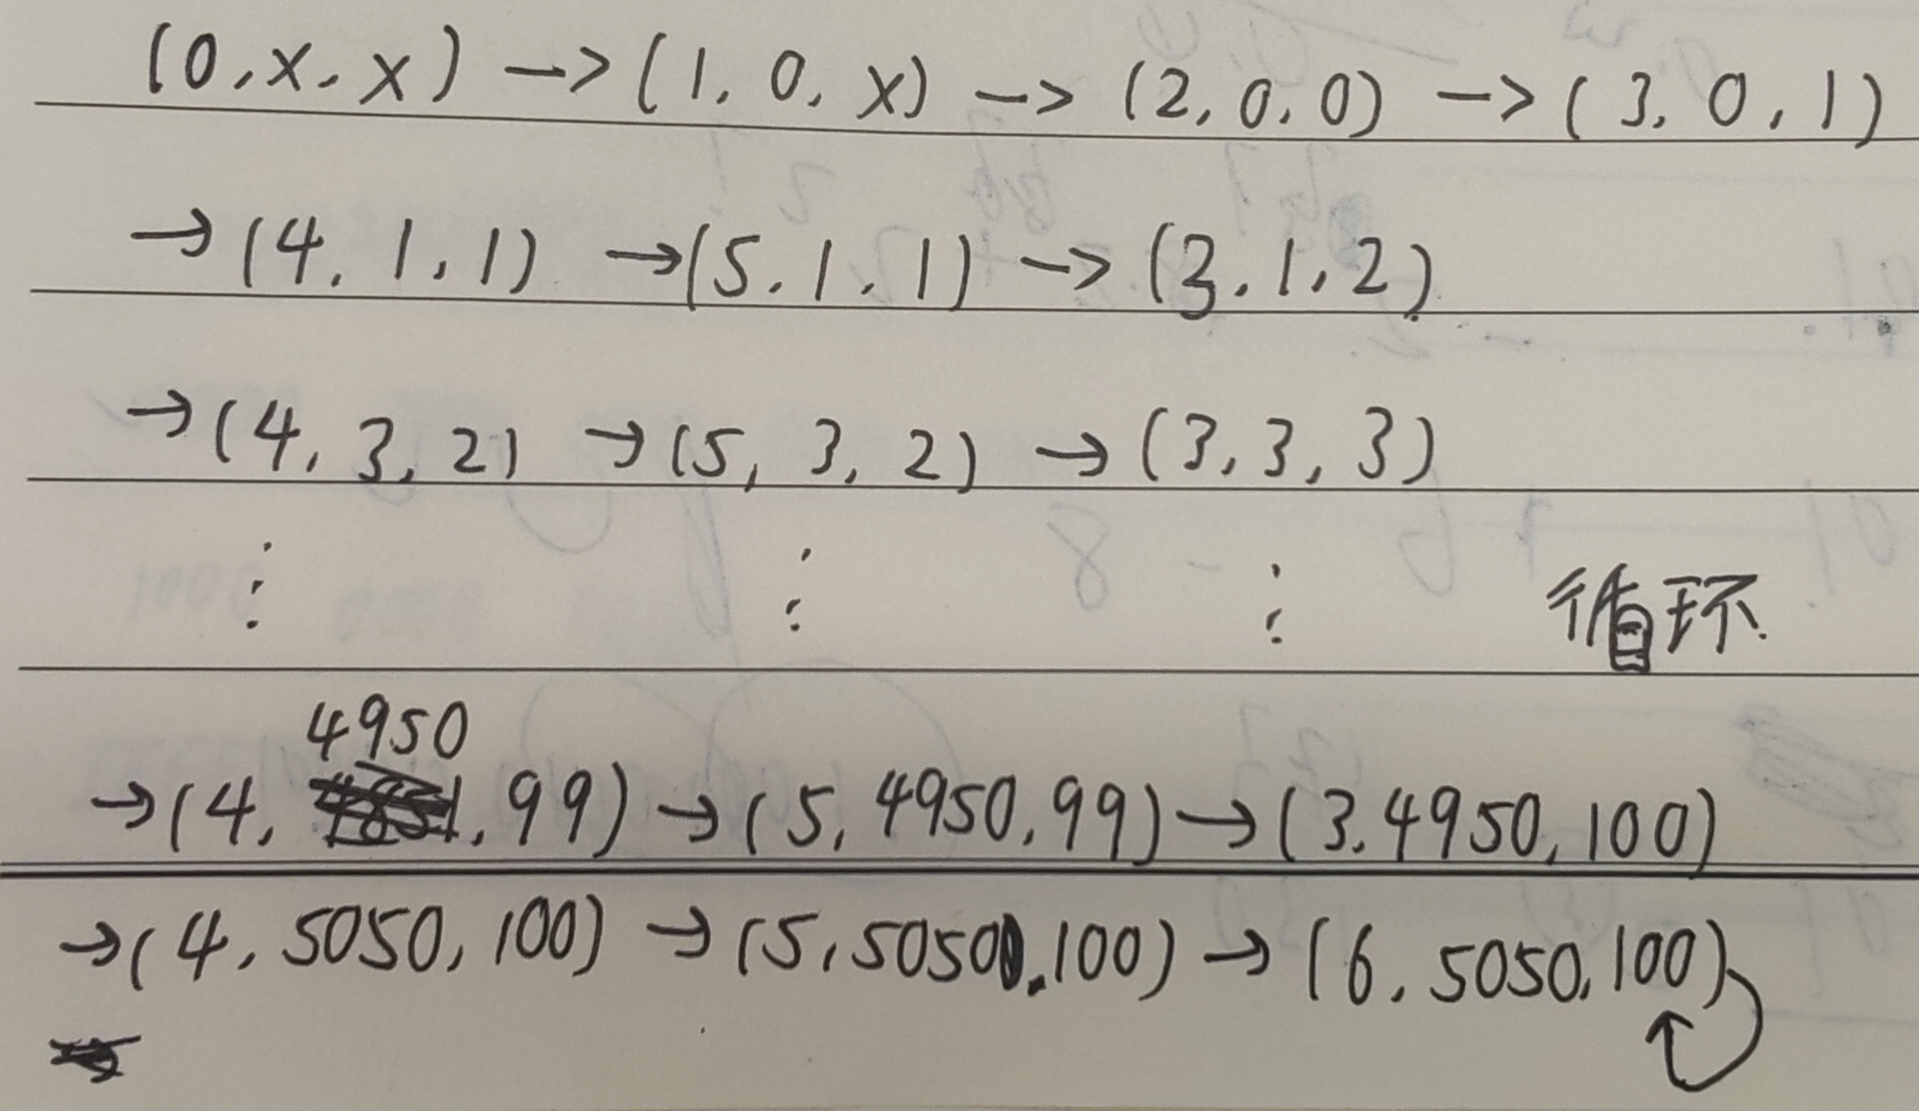 (0,x,x) -> (1,0,x) -> (2,0,0) -> (3,0,1)
→(4,1,1) →(5,1,1) -> (3,1,2)
→(4,3,2) →(5,3,2) →(3,3,3)
⋮ ⋮ ⋮ 循环
4950
→(4, ,99)→(5,4950,99)→(3,4950,100)
→(4,5050,100)→(5,5050,100)→(6,5050,100)